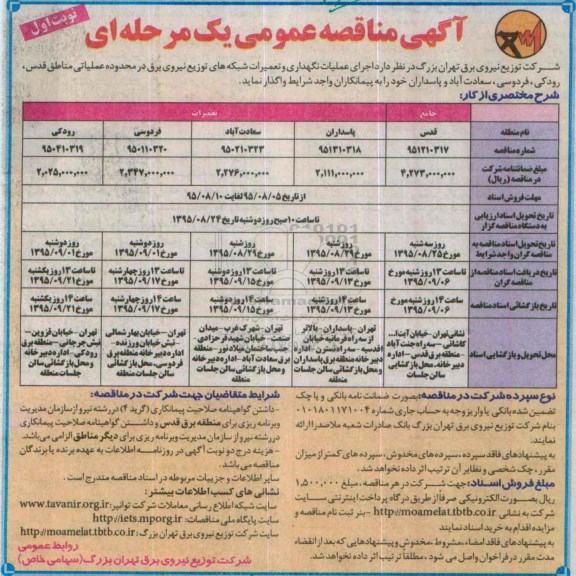 نوبت اول
آگهی مناقصه عمومی یک مرحله ای
شرکت توزیع نیروی برق تهران بزرگ در نظر دارد اجرای عملیات نگهداری و تعمیرات شبکه های توزیع نیروی برق در محدوده عملیاتی مناطق قدس،
رودکی، فردوسی، سعادت آباد و پاسداران خود را به پیمانکاران واجد شرایط واگذار نماید.
شرح مختصری از کار:
جامع تعمیرات
نام منطقه قدس پاسداران سعادت آباد فردوسی رودکی
شماره مناقصه ۹۵۱۲۱۰۳۱۷ ۹۵۱۳۱۰۳۱۸ ۹۵۰۲۱۰۳۲۳ ۹۵۰۱۱۰۳۲۰ ۹۵۰۴۱۰۳۱۹
مبلغ ضمانتنامه شرکت در مناقصه (ریال) ۴,۲۷۳,۰۰۰,۰۰۰ ۲,۱۱۱,۰۰۰,۰۰۰ ۲,۲۷۶,۰۰۰,۰۰۰ ۲,۳۴۷,۰۰۰,۰۰۰ ۲,۰۲۵,۰۰۰,۰۰۰
مهلت فروش اسناد از تاریخ ۹۵/۰۸/۰۵ لغایت ۹۵/۰۸/۱۰
تاریخ تحویل اسناد ارزیابی به دستگاه مناقصه گزار تا ساعت ۱۰ صبح روز دوشنبه تاریخ ۱۳۹۵/۰۸/۲۴
تاریخ تحویل اسناد مناقصه به مناقصه گران واجد شرایط روز سه شنبه مورخ ۱۳۹۵/۰۸/۲۵ روز شنبه مورخ ۱۳۹۵/۰۸/۲۹ روز شنبه مورخ ۱۳۹۵/۰۸/۲۹ روز دوشنبه مورخ ۱۳۹۵/۰۹/۰۱ روز دوشنبه مورخ ۱۳۹۵/۰۹/۰۱
تاریخ دریافت اسناد مناقصه از مناقصه گران تا ساعت ۱۳ روز شنبه مورخ ۱۳۹۵/۰۹/۰۶ تا ساعت ۱۳ روز شنبه مورخ ۱۳۹۵/۰۹/۱۳ تا ساعت ۱۳ روز دوشنبه مورخ ۱۳۹۵/۰۹/۱۵ تا ساعت ۱۳ روز چهارشنبه مورخ ۱۳۹۵/۰۹/۱۷ تا ساعت ۱۳ روز یکشنبه مورخ ۱۳۹۵/۰۹/۲۱
تاریخ بازگشائی اسناد مناقصه ساعت ۱۴ روز شنبه مورخ ۱۳۹۵/۰۹/۰۶ ساعت ۱۴ روز شنبه مورخ ۱۳۹۵/۰۹/۱۳ ساعت ۱۴ روز دوشنبه مورخ ۱۳۹۵/۰۹/۱۵ ساعت ۱۴ روز چهارشنبه مورخ ۱۳۹۵/۰۹/۱۷ ساعت ۱۴ روز یکشنبه مورخ ۱۳۹۵/۰۹/۲۱
محل تحویل و بازگشایی اسناد نشانی تهران - خیابان آیت ا... کاشانی - سه راه جنت آباد - منطقه برق قدس - اداره دبیرخانه - محل بازگشایی سالن جلسات
تهران - پاسداران - بالاتر از سه راه فرمانیه خیابان اقدسیه - سه راه نسترن - اداره دبیرخانه منطقه برق پاسداران و محل بازگشائی سالن جلسات
تهران - شهرک غرب - میدان صنعت - خیابان شهید فرحزادی - جنب ساختمان میلاد نور - منطقه برق سعادت آباد - اداره دبیرخانه و محل بازگشایی سالن جلسات
تهران - خیابان بهار شمالی - نبش خیابان ورزنده - اداره دبیرخانه منطقه برق فردوسی، محل بازگشائی سالن جلسات منطقه
تهران - خیابان قزوین - نبش جرجانی - منطقه برق رودکی - اداره دبیرخانه و محل بازگشایی سالن جلسات منطقه
نوع سپرده شرکت در مناقصه: بصورت ضمانت نامه بانکی و یا چک
تضمین شده بانکی یا واریز وجه به حساب جاری شماره ۰۱۰۱۸۰۱۱۷۱۰۰۴
بنام شرکت توزیع نیروی برق تهران بزرگ بانک صادرات شعبه ملاصدرا ارائه
نمایند.
به پیشنهادهای فاقد سپرده، سپرده های مخدوش، سپرده های کمتر از میزان
مقرر، چک شخصی و نظایر آن ترتیب اثر داده نخواهد شد.
مبلغ فروش اسناد: جهت شرکت در هر مناقصه، مبلغ ۱,۵۰۰,۰۰۰
ریال بصورت الکترونیکی صرفا از طریق درگاه پرداخت اینترنتی سایت
شرکت به نشانی http://moamelat.tbtb.co.ir - بنر ثبت نام مناقصه و
مزایده اقدام به خرید اسناد نمایند
به پیشنهادهای فاقد امضاء، مشروط، مخدوش و پیشنهادهایی که بعد از انقضاء
مدت مقرر در فراخوان واصل می شود، مطلقاً ترتیب اثر داده نخواهد شد.
شرایط متقاضیان جهت شرکت در مناقصه:
- داشتن گواهینامه صلاحیت پیمانکاری (گرید ۴) در رشته نیرو از سازمان مدیریت
وبرنامه ریزی برای منطقه برق قدس و داشتن گواهینامه صلاحیت پیمانکاری
در رشته نیرو از سازمان مدیریت و برنامه ریزی برای دیگر مناطق الزامی می باشد.
- هزینه درج دو نوبت آگهی در روزنامه ااطلاعات به عهده برنده یا برندگان
مناقصه می باشد.
سایر اطلاعات و جزییات مربوطه در اسناد مناقصه مندرج است.
نشانی های کسب اطلاعات بیشتر:
سایت شبکه اطلاع رسانی معاملات شرکت توانیر: www.tavanir.org.ir
سایت پایگاه ملی مناقصات: http://iets.mporg.ir
سایت شرکت توزیع نیروی برق تهران بزرگ: http://moamelat.tbtb.co.ir
روابط عمومی
شرکت توزیع نیروی برق تهران بزرگ (سهامی خاص)